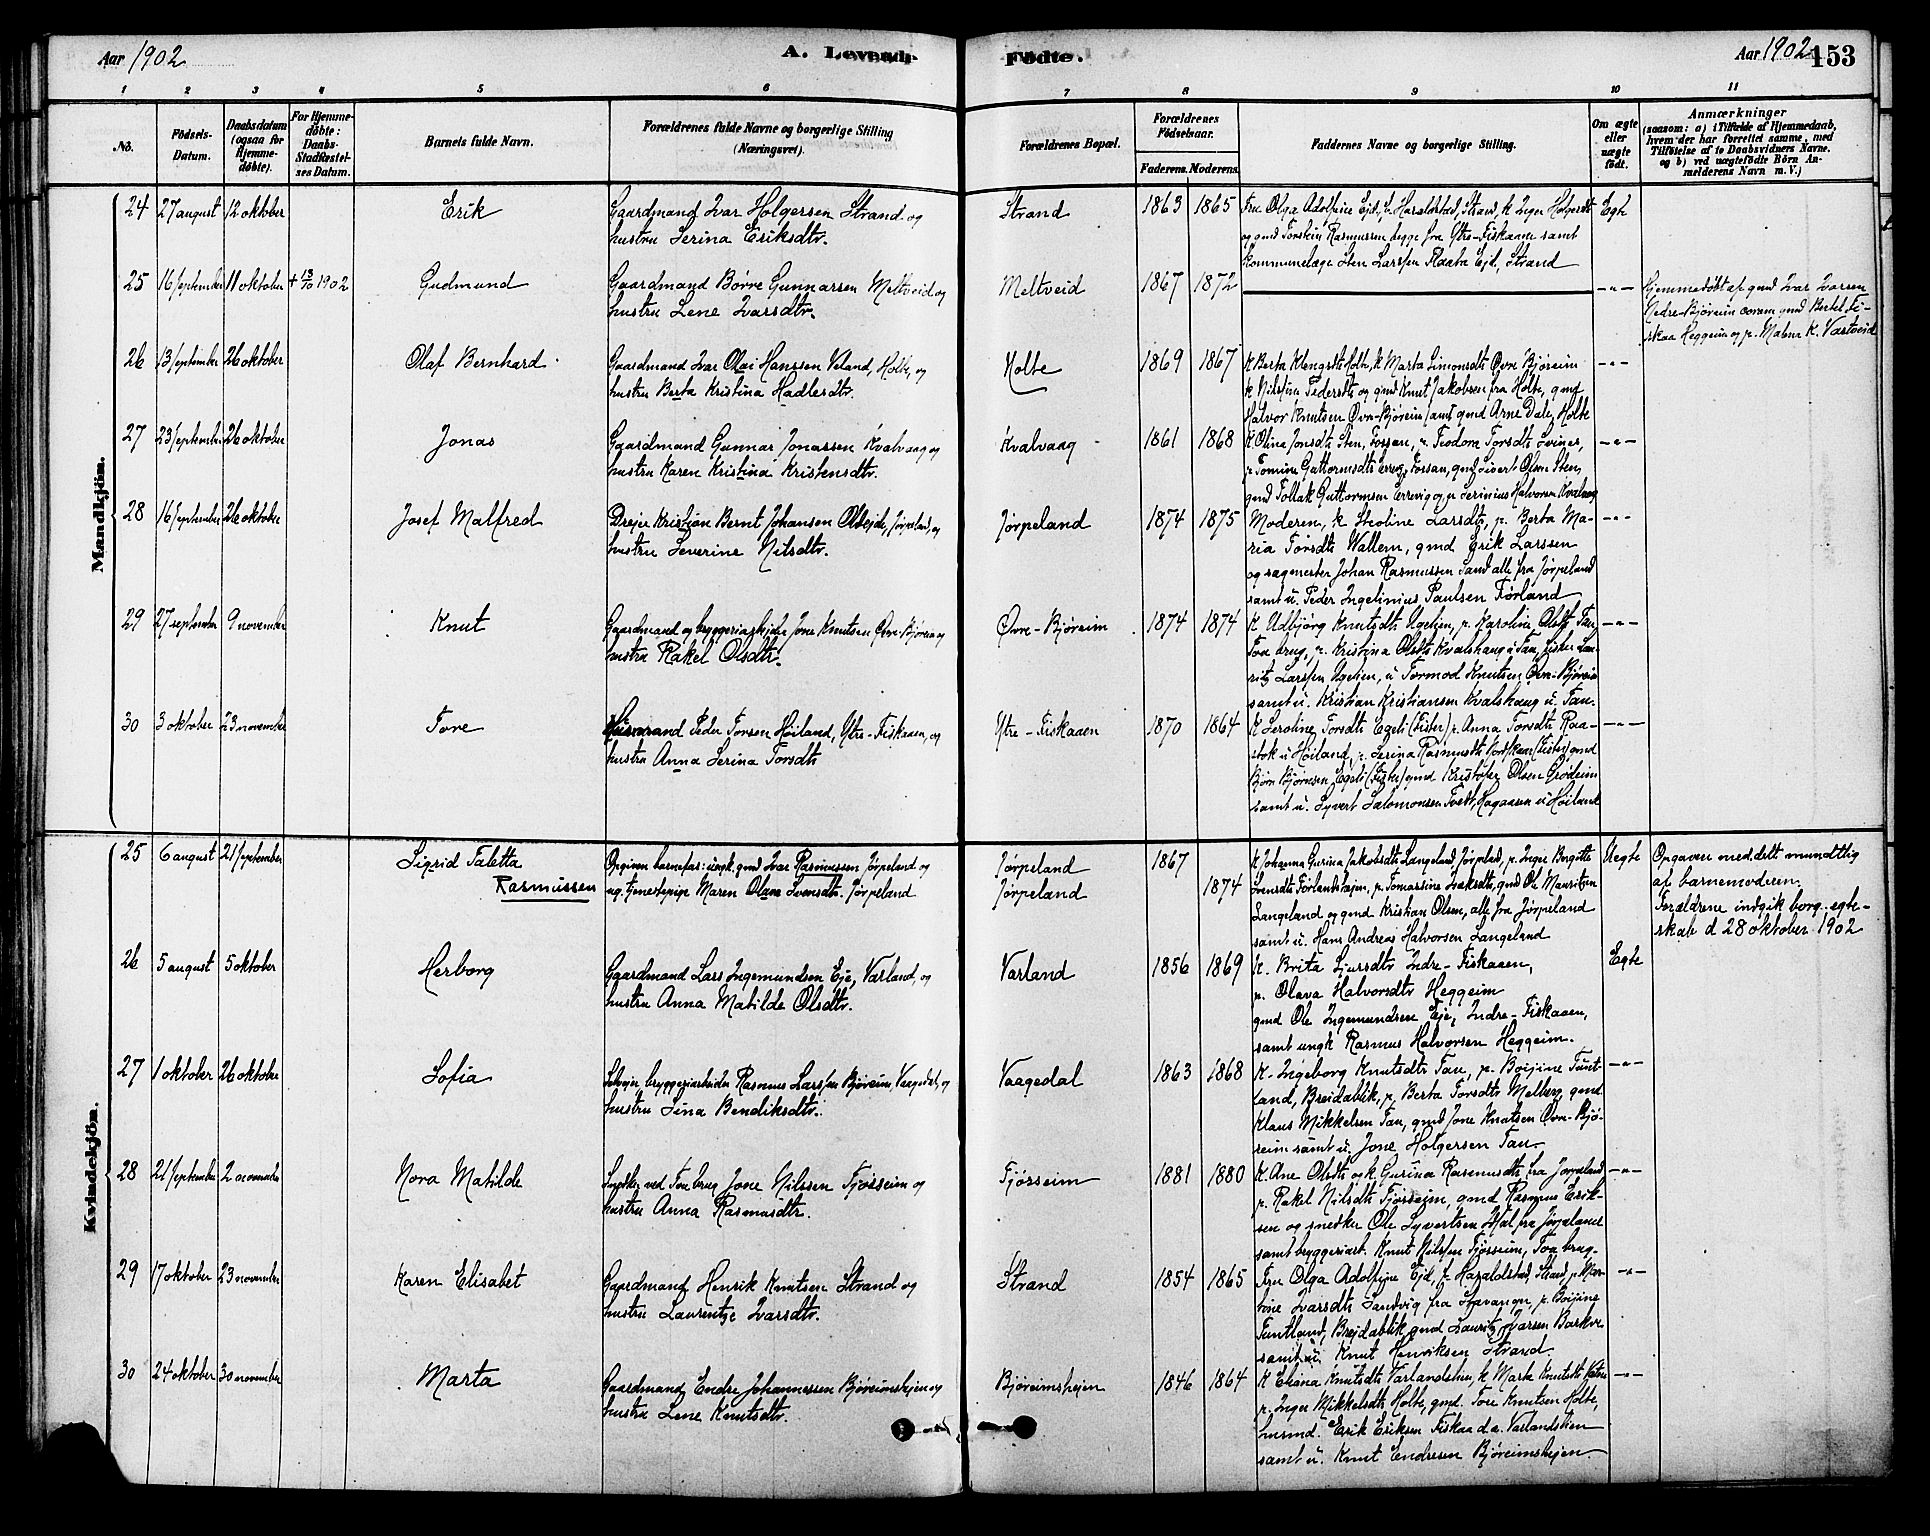 Aar 1902
A. Levende
Fødte.
Aar 1902
153
1 2 3 4 5 6 7 8 9 10 11
No.
Fødsels-
Datum.
Daabsdatum
(ogsaa for
Hjemme-
døbte).
For Hjemme-
døbte:
Daabs-
Stadfæstel-
ses Datum.
Barnets fulde Navn.
Forældrenes fulde Navne og borgerlige Stilling
(Næringsvei).
Forældrenes Bopæl.
Forældrenes
Fødselsaar.
Faderens. Moderens.
Faddernes Navne og borgerlige Stilling.
Om ægte
eller
uægte
født.
Anmærkninger
(saasom: a) i Tilfælde af Hjemmedaab,
hvem der har forrettet samme, med
Tilføielse af to Daabsvidners Navne.
og b) ved uægtefødte Børn An-
melderens Navn m. V.)
Mandkjøn.
24 27 august 12 oktober Erik
Gaardmand Ivar Holgersen Strand og
hustru Serina Eriksdtr.
Strand 1863 1865
Fru Olga Adolfine Ejd, f. Haraldstad, Strand, k Inger Holgersdt
og gmd Torstein Rasmussen begge fra Ytre-Fiskaaen samt
kommunelæge Sten Larssen Flaata Ejd, Strand
Egte
25 16 september 11 oktober + 13/10 1902 Gudmund
Gaardmand Børre Gunnarsen Meltveid og
hustru Lene Ivarsdtr.
Meltveid 1867 1872
-"-
Hjemmedøbt af gmd Ivar Ivarsen
Nedre-Bjøreim coram gmd Bertel Fi-
skaa Heggeim og p. Malena K. Vastveid
26 13 september 26 oktober Olaf Bernhard
Gaardmand Ivar Olai Hanssen Veland, Holte, og
hustru Berta Kristina Hadlesdtr.
Holte 1869 1867
K Berta Klengsdt Holte, k Marta Simonsdt Øvre Bjøreim
k Nilsina Pedersdt og gmd Knut Jakobsen fra Holte, gmd
Halvor Knutsen Øvre-Bjøreim samt gmd Arne Dale, Holte
-"-
27 23 september 26 oktober Jonas
Gaardmand Gunnar Jonassen Kvalvaag og
hustru Karen Kristina Kristensdtr.
Kvalvaag 1861 1868
K Olina Jonsdt Sten, Fossan, p. Teodora Torsdt
gmd Sivert Olsen Sten,
gmd Tollak Guttormsen Errevig og u Serinius Halvorsen Kvalvaag
-"-
28 16 september 26 oktober Josef Malfred
Drejer Kristian Bernt Johansen Jørpeland, og
hustru Severine Nilsdtr.
Jørpeland 1874 1875
Moderen, k Larsdt, p. Berta Ma-
ria Torsdt Wallem, gmd Erik Larssen
og sagmester Johan Rasmussen Sand alle fra Jørpeland
samt u. Peder Ingelinius Paulsen Førland
-"-
29 27 september 9 november Knut
Gaardmand og bryggeriarbeider Jone Knutsen Øvre-Bjøreim og
hustru Rakel Olsdtr.
Øvre-Bjøreim 1874 1874
K Udbjørg Knutsdt p. Karoline Olsdt Tau,
Tou brug, p. Kristina Olsdt Kvalshaug u Tau, fisker Lau-
ritz Larssen u Tormod Knutsen Øvre-Bjøreim
samt u. Kristian Kristiansen Kvalshaug u. Tau.
-"-
30 3 oktober 23 november Tore
Husmand Peder Torsen Høiland, Ytre-Fiskaaen, og
hustru Anna Serina Torsdt
Ytre-Fiskaaen 1870 1864
K Seroline Torsdt Egeli (Fister) p. Anna Torsdt Raa-
stok u Høiland, p. Serina Rasmusdt (Fister) gmd
Bjørn Bjørnsen Egeli (Fister) gmd Kristofer Olsen Grødeim
samt u. Syvert Salomonsen Tveit, Hagaasen u Høiland
-"-
Kvindekjøn.
25 6 august 21 september Sigrid Taletta
Rasmussen
Opgiven barnefar: ungk. gmd Ivar Rasmussen Jørpeland og
ug. tjenestepige Maren Olava Svensdtr. Jørpeland
Jørpeland
Jørpeland
1867
1874
K Johanna Gurina Jakobsdt Langeland, Jørpeland, p. Inger Bergitte
Svensdt Førlandshejen, p. Tomassine Isaksdt, gmd Ole Mauritzen
Langeland og gmd Kristian Olsen, alle fra Jørpeland
samt u. Hans Andreas Halvorsen Langeland
Uegte
Opgaven meddelt mundtlig
af barnemoderen.
Forældrene indgik borg. egte-
skab d 28 oktober 1902
26 5 august 5 oktober Herborg
Gaardmand Lars Ingemundsen Eje, Varland, og
hustru Anna Matilde Olsdtr.
Varland 1856 1869
K. Brita Sjursdtr Indre-Fiskaaen,
p. Olava Halvorsdtr Heggeim
gmd Ole Ingemundsen Eje, Indre-Fiskaaen,
samt ungk Rasmus Halvorsen Heggeim.
Egte
27 1 oktober 26 oktober Sofia
Selvejer, bryggeriarbeider Rasmus Larssen Bjøreim, Vaagedal, og
hustru Sina Bendiksdtr.
Vaagedal 1863 1868
K. Ingeborg Knutsdtr Tau, p. Boijine Tunt-
land, Breidablik, p. Berta Torsdtr Melberg, gmd
Klaus Mikkelsen Tau, gmd Jone Knutsen Øvre-Bjø-
reim samt u. Jone Holgersen Tau.
-"-
28 21 september 2 november Nora Matilde
Snedker ved Tou brug Jone Nilssen Fjøsseim og
hustru Anna Rasmusdtr.
Fjøsseim 1881 1880
K. Ane Olsdt og k Gurina Rasmusdt fra Jørpeland
p. Rakel Nilsdt Fjøsseim, gmd Rasmus Erik-
sen og snedker Ole Syvertsen Hal fra Jørpeland
samt bryggeriarb. Knut Nilssen Fjøsseim, Tou brug.
-"-
29 17 oktober 23 november Karen Elisabet
Gaardmand Henrik Knutsen Strand og
hustru Laurentse Ivarsdtr.
Strand 1854 1865
Fru Olga Adolfine Ejd, f. Haraldstad Strand, p Mar-
tine Ivarsdt Sandvig fra Stavanger, p. Boijine
Tuntland, Breidablik, gmd Lauritz Ivarsen Barkve
samt u. Knut Henriksen Strand.
-"-
30 24 oktober 30 november Marta
Gaardmand Endre Johannessen Bjøreimshejen og
hustru Lene Knutsdtr.
Bjøreimshejen 1846 1864
K Eliana Knutsdt Varlandshein, k Marta Knutsdt
p. Inger Mikkelsdt Holte, gmd. Tore Knutsen Holte,
husmd. Erik Eriksen Fiskaa d.a. Varlandshien
samt u. Knut Endresen Bjøreimshejen.
-"-